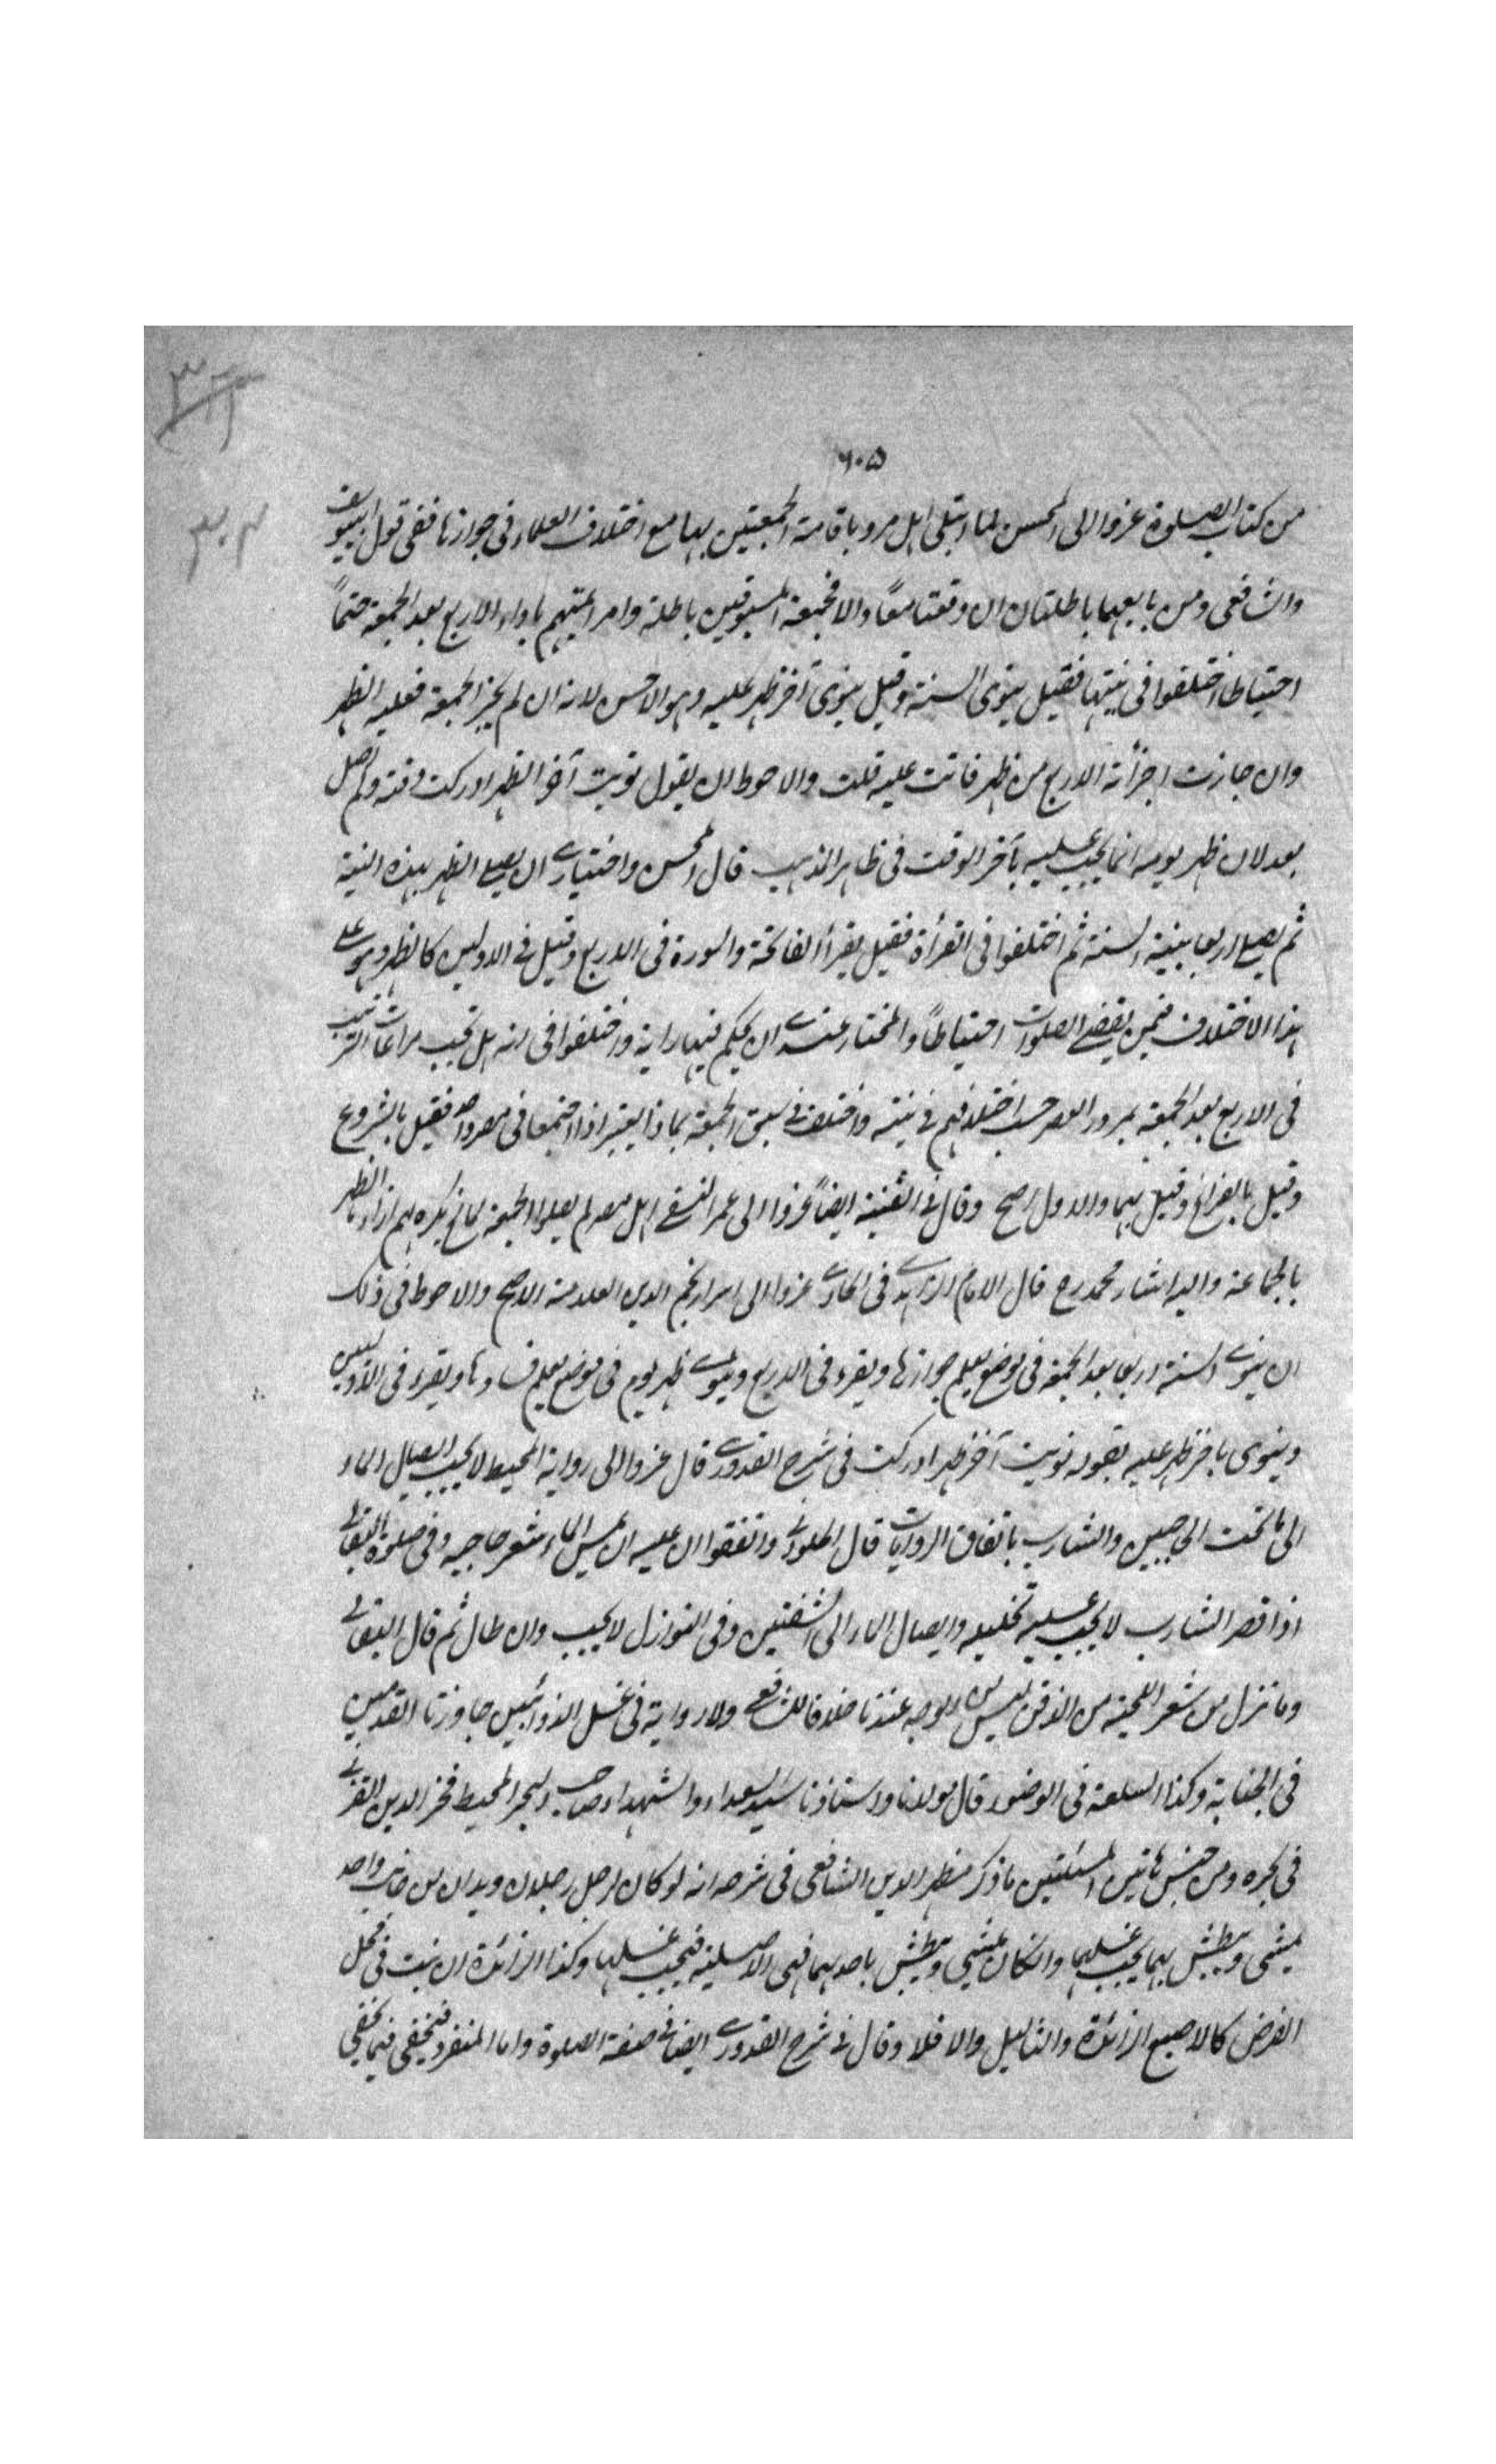 ٦٠٥
من كتاب الصلوة عزوا الى المحسن لما ابتلى اهل مرو باقامة الجمعتين بها مع اختلاف العلماء فى جوازها ففى قول ابييوسف
والشافعى ومن تابعهما باطلتان ان وقعتا معًا والا فجمعة المسبوقين باطلة وامر ائمتهم باداء الاربع بعد الجمعة حتمًا
احتياطا اختلفوا فى نيتها فقيل ينوى السنة وقيل ينوى آخر ظهر عليه وهو الاحسن لانه ان لم يجز الجمعة فعليه الظهر
وان جازت اجزأته الاربع من ظهر فاتت عليه قلت والاحوط ان يقول نويت آخر الظهر ادركت وقته ولم اصل
بعد لان ظهر يومه انما يجب عليه بآخر الوقت فى ظاهر المذهب قال المحسن واختيارى ان يصلى الظهر بهذه النية
ثم يصلى اربعا بنية السنة ثم اختلفوا فى القرأة فقيل يقرأ الفاتحة والسورة فى الاربع وقيل فى الاوليين كالظهر وهو على
هذا الاختلاف فيمن يقضى الصلوات احتياطًا والمختار عندى ان يحكم فيها رايه واختلفوا فى انه هل تجب مراعات الترتيب
فى الاربع بعد الجمعة بمرور العصر حسب اختلافهم فى نيته واختلف فى سبق الجمعة بماذا يعتبر اذا اجتمعا فى مصر واحد فقيل بالشروع
وقيل بالفراغ وقيل بهما والاول اصح وقال فى القنية ايضًا عزوا الى عمر النسفى اهل مصر لم يصلوا الجمعة لمانع يكره لهم اداء الظهر
بالجماعة واليه اشار محمد رح قال الامام الزاهدى فى الحاوى عزوا الى اسرار نجم الدين العلامة الاصح والاحوط فى ذلك
ان ينوى السنة اربعا بعد الجمعة فى موضع يعلم جوازها ويقرء فى الاربع وينوى ظهر يوم فى موضع يعلم فسادها ويقرء فى الاوليين
وينوى باخر ظهر عليه بقوله نويت آخر ظهر ادركت فى شرح القدورى قال عزوا الى رواية المحيط لا يجب ايصال الماء
الى ما تحت الحاجبين والشارب باتفاق الروايات قال الحلوانى واتفقوا ان عليه ان يمس الماء شعر حاجبيه وفى صلوة البقالى
اذا قصر الشارب لا يجب عليه تخليله وايصال الماء الى الشفتين وفى النوازل لا يجب وان طال ثم قال البقالى
وما نزل من شعر اللحية من الذقن ليس من الوجه عندنا خلافا للشافعى ولا رواية فى غسل الذوائبين جاوزتا القدمين
فى الجنابة وكذا السلعة فى الوضوء قال مولانا واستاذنا سيد السعداء والشهداء صاحب البحر المحيط فخر الدين القزبى
فى بحره ومن جنس هاتين المسئلتين ما ذكر مظهر الدين الشافعى فى شرحه انه لو كان لرجل رجلان ويدان من جانب واحد
يمشى ويبطش بهما يجب غسلهما وان كان يمشى ويبطش باحدهما فهى الاصلية فيجب غسلها وكذا الزائدة ان نبت فى محل
الفرض كالاصبع الزائدة والثاليل والا فلا وقال فى شرح القدورى ايضا فى صفة الصلوة واما المنفرد فيخفى فيما يخفى